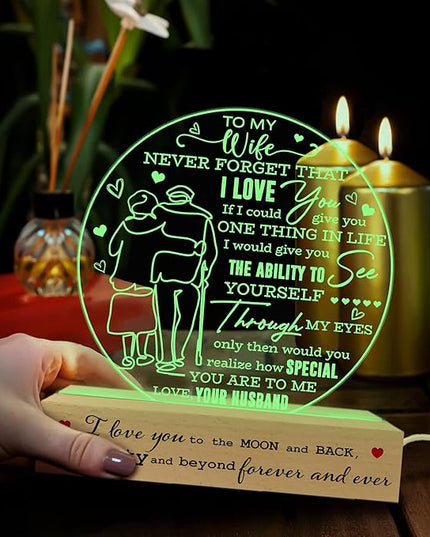 TO MY
Wife
NEVER FORGET THAT
I LOVE You
If I could give you
ONE THING IN LIFE
I would give you
THE ABILITY TO See
YOURSELF
Through MY EYES
only then would you
realize how SPECIAL
YOU ARE TO ME
LOVE, YOUR HUSBAND
I love you to the MOON and BACK,
and beyond forever and ever